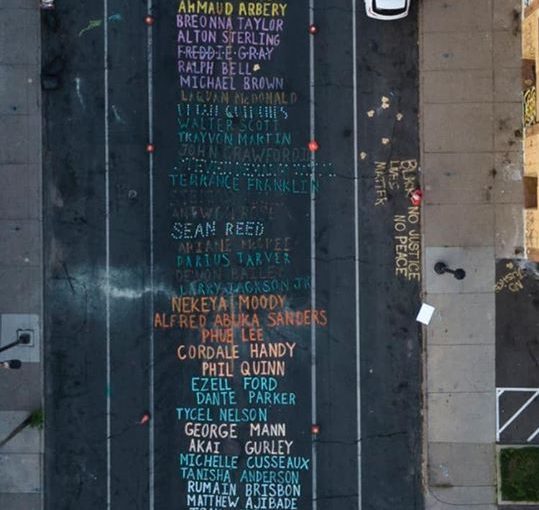 AHMAUD ARBERY
BREONNA TAYLOR
ALTON STERLING
FREDDIE GRAY
RALPH BELL
MICHAEL BROWN
LAQUAN MCDONALD
WALTER SCOTT
TRAYVON MARTIN
JOHN CRAWFORD
TERRANCE FRANKLIN
SEAN REED
DARIUS TARVER
BAILEY
LARRY JACKSON JR
NEKEYA MOODY
ALFRED ABUKA SANDERS
PHUE LEE
CORDALE HANDY
PHIL QUINN
EZELL FORD
DANTE PARKER
TYCEL NELSON
GEORGE MANN
AKAI GURLEY
MICHELLE CUSSEAUX
TANISHA ANDERSON
RUMAIN BRISBON
MATTHEW AJIBADE
BLACK
LIVES
MATTER
NO JUSTICE
NO PEACE